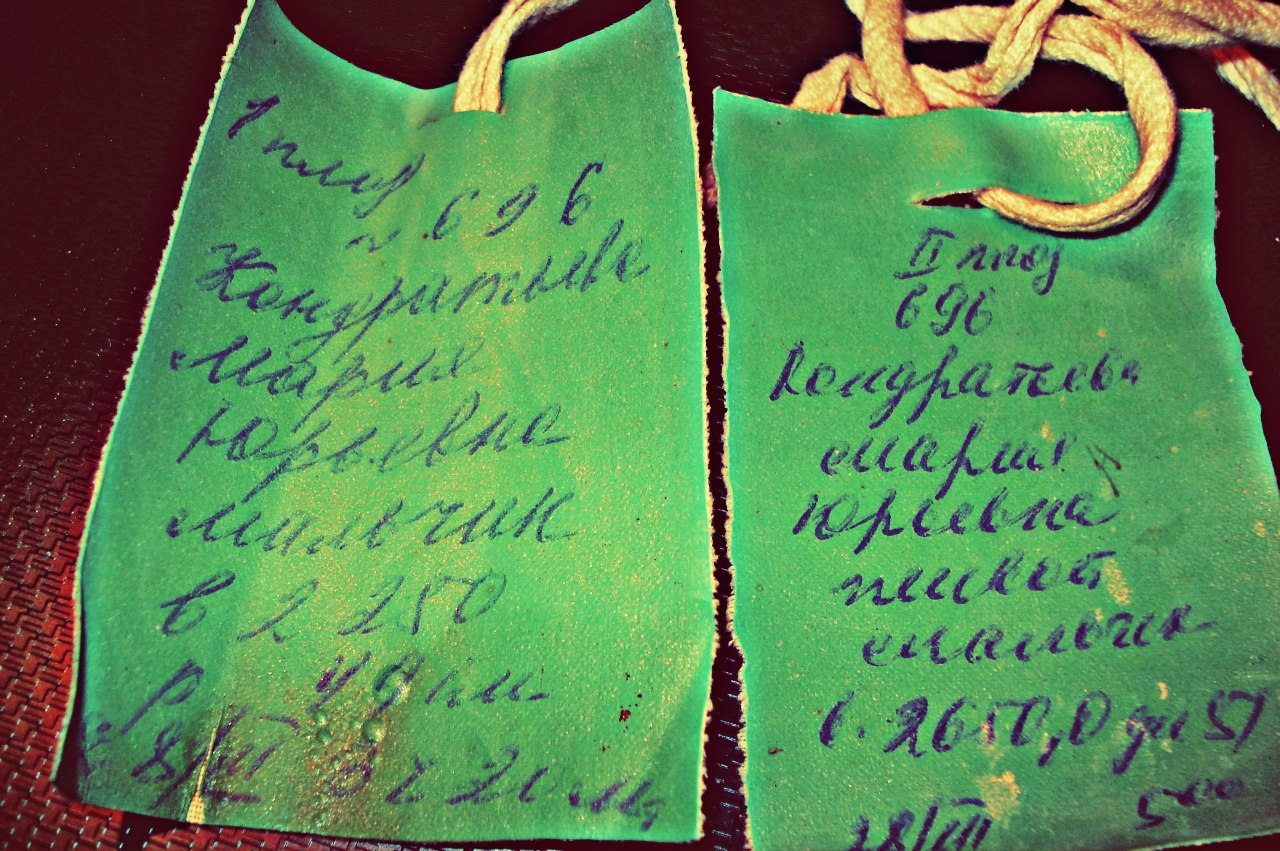 1 плод
№ 696
Кондратьева
Мария
Юрьевна
Мальчик
в 2 250
р 49 см
28/III 3 ч 20 м
II плод
696
Кондратьева
Мария
Юрьевна
живой
мальчик
в. 2650,0 дл 51
28/III 5 00